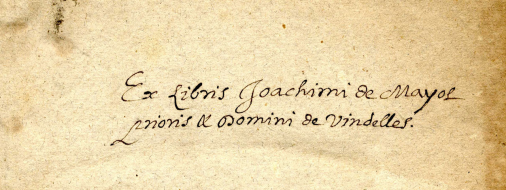 Ex Libris Joachimi de Mayol
Prioris & Domini de Vindelles.